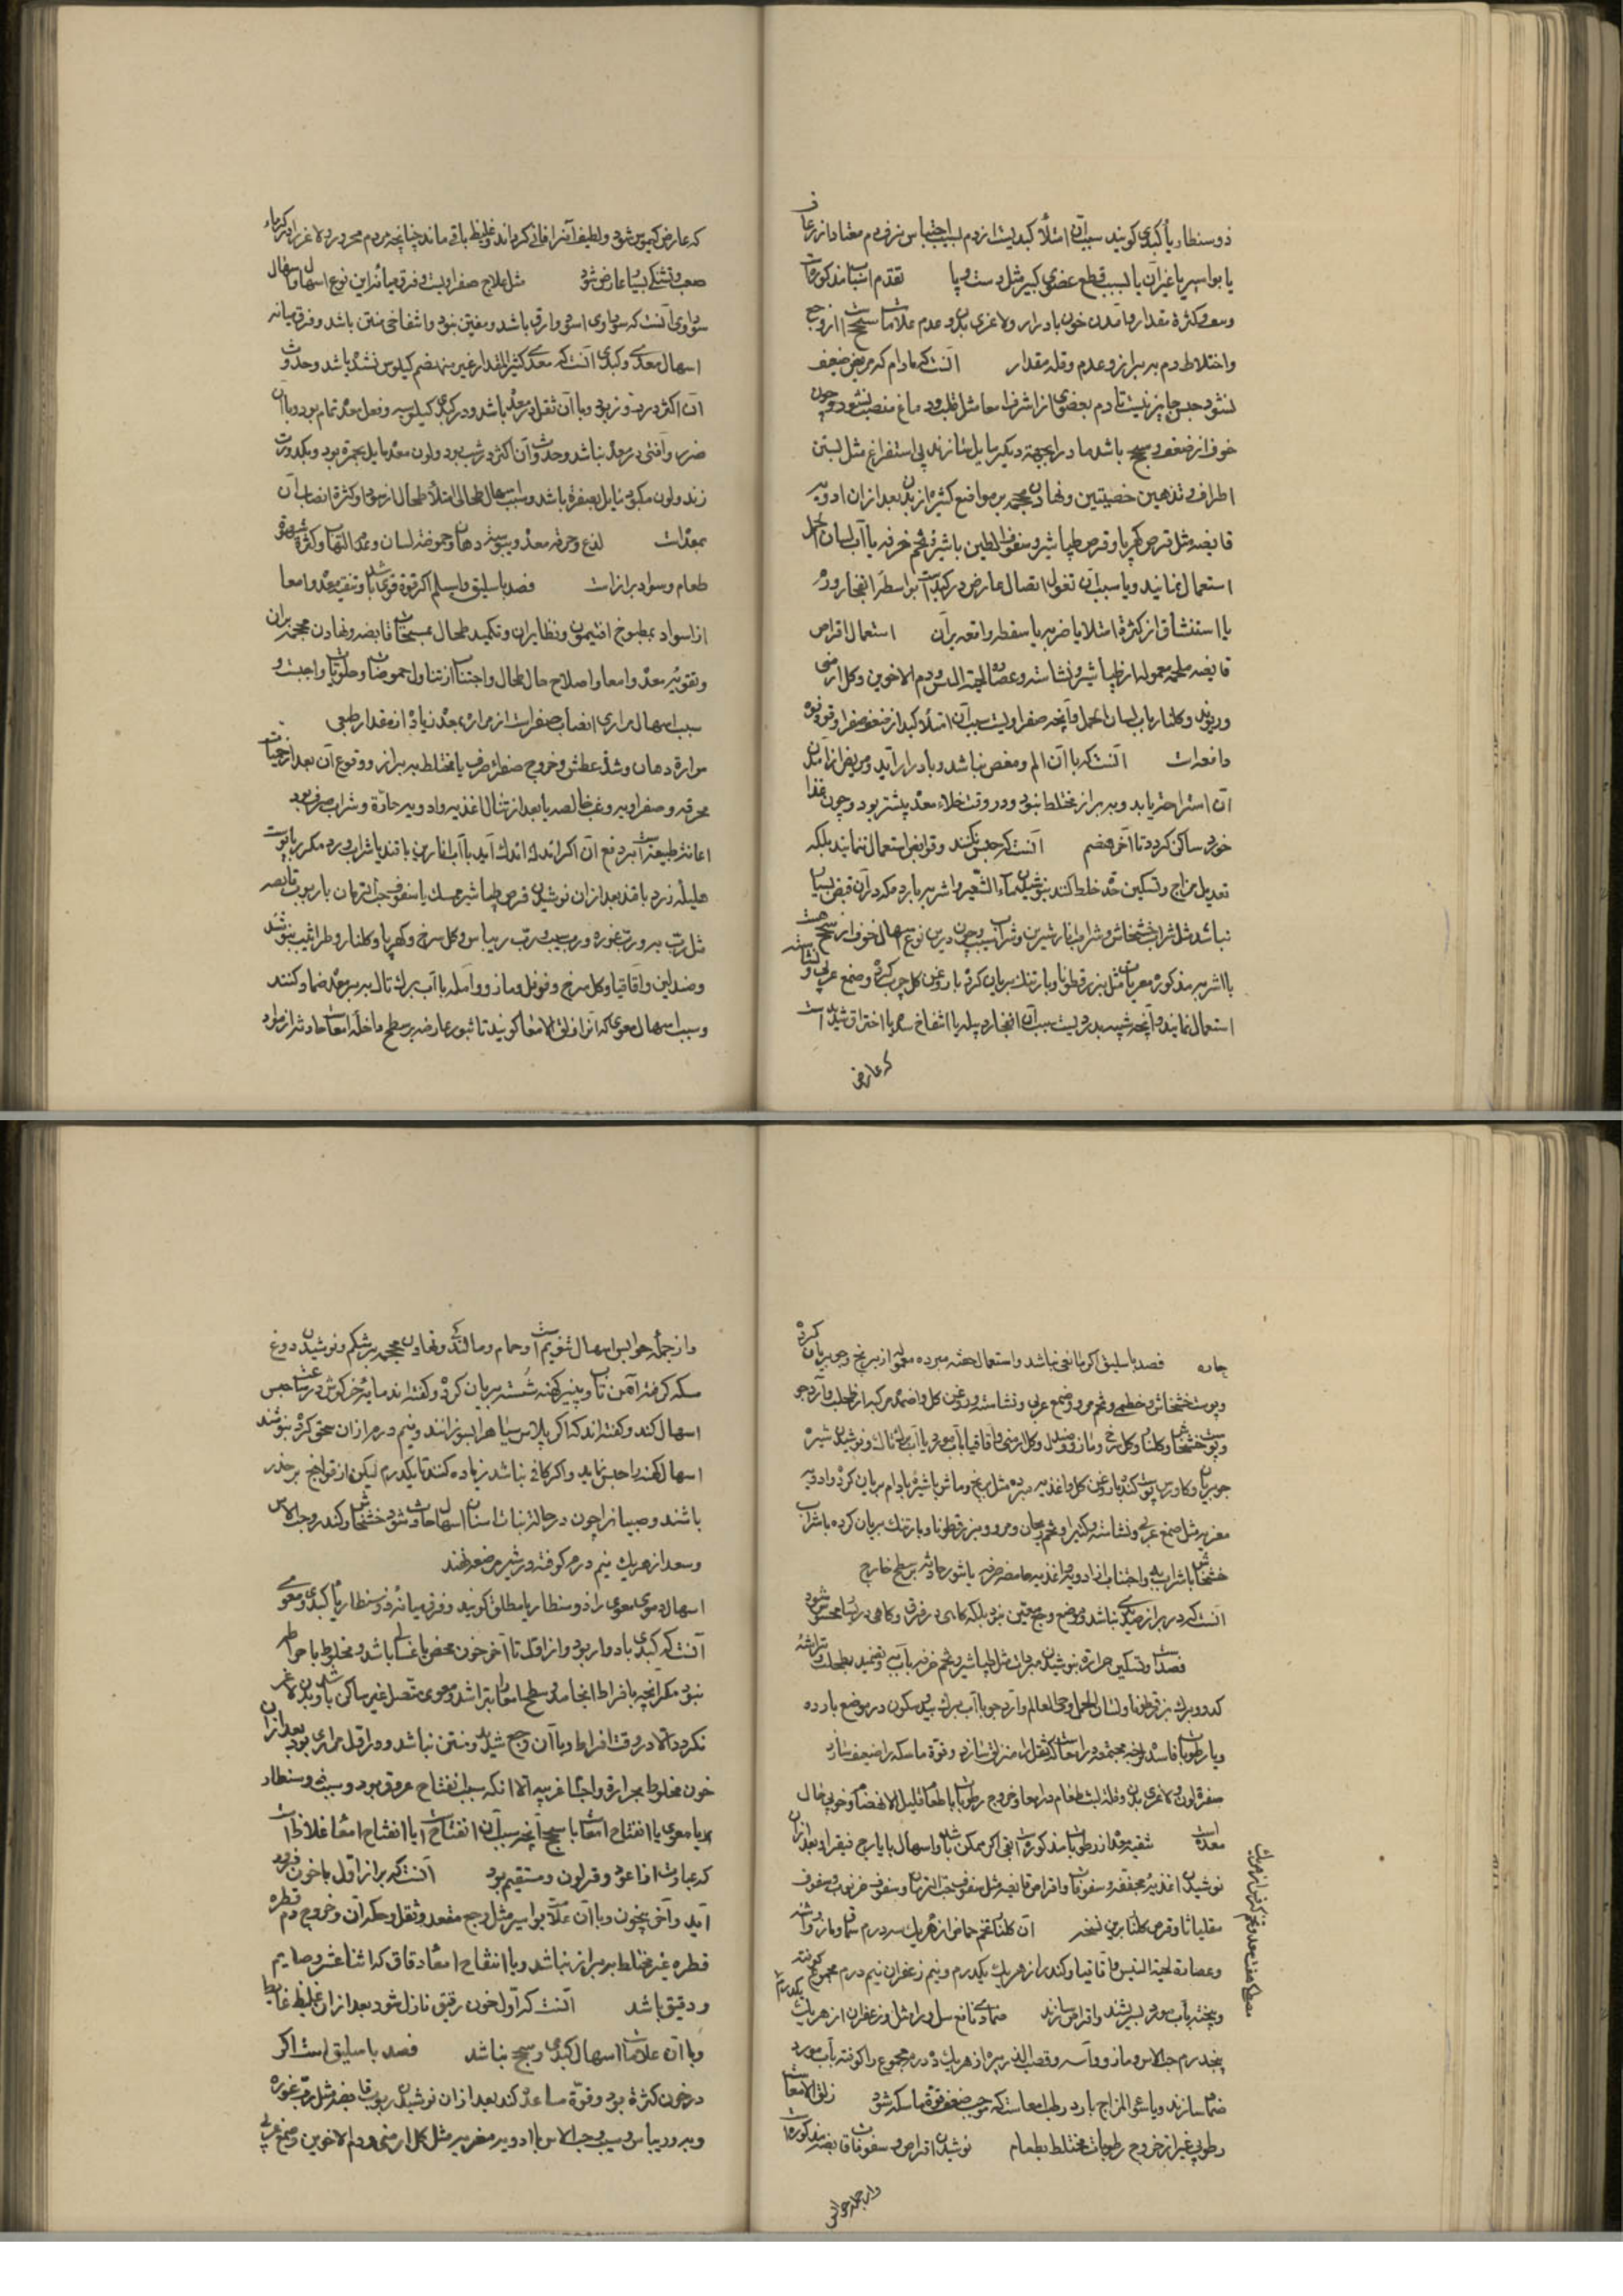 ذوسنطاریا کبدی کویند سبب آن امتلأ کبدیست از دم بسبب احتباس نزف دم معتاد از رعاف
یا بواسیر یا غیر آن یا بسبب قطع عضوی کبیر مثل دست و پا تقدم اسباب مذکوره است
واختلاط دم ببراز وعدم وقله مقدار آنست که مادام که مریض ضعیف
نشود حبس جایز نیست تا دم بعضوی از اشرف امعا مثل قلب و دماغ منصب نشود و چون
اطراف و تدهین خصیتین ونهادن محجمه بر مواضع کثیره از بدن بعد از ان ادویه
قابضه مثل قرص کهربا و قرص طباشیر و سفوف الطین با شیره تخم خرفه یا آب لسان الحمل
استعمال نمایند ویا سبب آن تفرق اتصال عارض در کبد است بواسطه انفجار ورم
یا استنشاق از کثرة امتلا یا ضربه یا سقطه واقعه بر آن استعمال اقراص
قابضه ملحمه معموله از طباشیر و نشاسته وعصاره لحیة التیس و دم الاخوین وکل ارمنی
دافعه است آنست که با آن الم ومغص نباشد و بادرار آید و مریض از آمدن
آن استراحت یابد وببراز مختلط نبود و در وقت خلاء معده بیشتر بود و چون غذا
خورد ساکن کردد تا آخر هضم آنست که حبس نکنند وقوابض استعمال ننمایند بلکه
تعدیل مزاج وتسکین حده خلط کنند بنوشیدن ماء الشعیر واشربه بارده که در آن قبض بسیار
نباشد مثل شراب خشخاش وشراب انار شیرین وشراب سیب و چون درین نوع اسهال خوف از سحج هست
با اشربه مذکوره مغریات مثل بزرقطونا وبارتنک بریان کرده با روغن کل چرب کرده وصمغ عربی و نشاسته
استعمال نمایند وآنچه شبیه بدردیست سبب آن انفجار دبیله یا انتفاخ سده یا احتراق شدید است
که عارض
که عارض کیموس شود ولطیف آنرا فانی کرداند وغلیظ باقی ماند چنانچه مردم محرور لاغر را در کرماء
صعب وتشنکی بسیار عارض شود مثل علاج صفراویست وفرق میان این نوع اسهال واسهال
سوداوی آنست که سوداوی اسود وارق باشد ومنتن نبود و اشقاخی منتن باشد وفرق میانه
اسهال معدی وکبدی آنست که معدی کثیر المقدار غیر منهضم کیلوس نشده باشد وحدوث
ضرر وآفتی در معده نباشد وحدوث آن اکثر در شب بود ولون معده مایل بحمره بود وبکدورت
زند ولون مکبود مایل بصفره باشد وسبب اسهال طحالی امتلأ طحال از سودا وکثرة انصاب آن
بمعده است لذع وحرقه معده ویبوسة دهان وحموضه لسان وعدم التهاب وکثرة شهوة
طعام وسواد براز است فصد باسلیق واسیلم اکر قوة قوی باشد وتنقیه معده وامعا
از اسواد بمطبوخ افتیمون ونظایر آن وتکمید طحال بمسخنات قابضه ونهادن محجمه بر آن
وتقویة معده وامعا واصلاح حال طحال واجتناب از تناول حموضات وحلویات واجبست و
سبب اسهال مراری انصباب صفراست از مراره بمعده زیاده از مقدار طبیعی
مراره دهان وشدة عطش وخروج صفراء صرف یا مختلط ببراز ووقوع آن بعد از حمیات
محرقه وصفراویه وغب خالصه یا بعد از تناول اغذیه وادویه حاده وشراب صرف بود
هلیله زرد با قند بعد از ان نوشیدن قرص طباشیر ممسک یا سفوف حب الرمان با ربوب قابضه
مثل رب به ورب غوره ورب سیب ورب ریباس وکل سرخ وکهربا وکلنار وطراثیث بنوشند
وصندلین واقاقیا وکل سرخ وفوفل ومازو وآمله با آب برک تاک بر معده ضماد کنند
وسبب اسهال معوی که آنرا زلق الامعا کویند تا بثور عارضه بر سطح داخل امعاست حادثه از مواد
حاده فصد باسلیق اکر مانعی نباشد واستعمال حقنه مبرده معموله از برنج وجو بریان کرده
وپوست خشخاش وخطمی وتخم مرو وصمغ عربی ونشاسته وروغن کل واضمده مرکبه از طحلب وآرد جو
وپوست خشخاش وکلنار وکل سرخ ومازو وصندل وکل ارمنی واقاقیا بآب مورد یا آب برک تاک ونوشیدن شیره
جو بریان وکاورس پوست کنده با روغن کل واغذیه مبرده مثل برنج وماش با شیره بادام بریان کرده وادویه
مغریه مثل صمغ عربی ونشاسته وکتیرا وتخم ریحان ومرو وبزرقطونا وبارتنک بریان کرده با شراب
خشخاش یا شراب به واجتناب از ادویه واغذیه حامضه صرفه یا بثور حادثه بر سطح خارج
آنست که در براز صدیدی نباشد وموضع وجع معین نبود بلکه کاهی در فوق وکاهی در اسافل محسوس شود
فصد است وتسکین حراره بنوشیدن مبردات مثل طباشیر وتخم خرفه بآب به وتضمید بطحلب وتراشه
کدو وبرک بزرقطونا ولسان الحمل وحی العالم وآرد جو با آب برک بید وسکون در موضع بارده
ویا رطوبات فاسده لزجه مجتمعه در امعاست که ثفل را منزلق سازد وقوة ماسکه را ضعیف سازد
صفرة لون ولاغری بدن وقلة لبث طعام در امعا وخروج رطوبات با طعام قلیل الانهضام وخوبی حال
معده است تنقیه معده از رطوبات مذکوره است بقی اکر ممکن باشد واسهال بایارج فیقرا وبعد از آن
نوشیدن اغذیه مجففه وسفوفات واقراص قابضه مثل سفوف حب الرمان وسفوف خرنوب وسفوف
مقلیاثا وقرص کلنار برین نسخه آن کلنار تخم حماض از هر یک سه درم سماق ومازو واشنه
وعصاره لحیة التیس واقاقیا وکندر از هر یک یکدرم ونیم زعفران نیم درم مجموع کوفته
وبیخته بآب مورد بسرشند واقراص سازند ضمادی نافع سک ورامک وزعفران از هر یک یکدرم
پنجدرم حب الاس ومازو وآس وقصب الذریره از هر یک ده درم مجموع را کوفته بآب مورد
ضماد سازند ویا سوء المزاج بارد رطب امعاست که موجب ضعف قوة ماسکه شود زلق الامعاست
رطوبی غیر از خروج رطوبات مختلط بطعام نوشیدن اقراص وسفوفات قابضه مذکوره است
واز جمله حوابس
واز جمله حوابس اسهال تنویم است وحمام ومالندک ونهادن محجمه بر شکم ونوشیدن دوغ
سکه کرفته آهن تاب وپنیر کهنه شسته بریان کرده وکفته اند مایه خرکوش در ساعت حبس
اسهال کند وکفته اند که اکر پلاس سیاه را بسوزانند ونیم درم از ان سحق کرده بنوشند
اسهال کهنه را حبس نماید واکر کافی نباشد زیاده کنند تا یکدرم لیکن از قولنج بر حذر
باشند وصبیانرا چون در حالة نبات اسنان اسهال حادث شود خشخاش وکندر وحب الاس
وسعد از هر یک نیم درم کوفته در شیر مرضعه نهند
اسهال دموی معوی را ذوسنطاریا مطلق کویند وفرق میان ذوسنطاریا کبدی ومعوی
آنست که کبدی بادوار بود واز اول تا آخر خون محض یا غسالی باشد ومخلوط باخراطه
نکردد الا در وقت افراط وبا آن وجع شدید ومنتن نباشد ودر اول مراری بود بعد از ان
خون مخلوط بخراطه واجسام غریبه الا آنکه سبب انفتاح عروق بود وسبب ذوسنطار
یا معوی یا انفتاح امعاست یا سحج آنچه سبب آن انفتاح است یا انفتاح امعاء غلاظ است
که عبارت از اعور وقولون ومستقیم بود آنست که براز اول با خون فرود
آید وآخر بیخون وبا آن علامات بواسیر مثل وجع مقعد وثقل وحکه آن وخروج دم قطره
قطره غیر مختلط ببراز نباشد ویا انفتاح امعاء دقاق که اثنا عشر وصایم
ودقیق باشد آنست که اول خون رقیق نازل شود بعد از ان غلیظ غایط
وبا آن علامات اسهال کبدی وسحج نباشد فصد باسلیق است اکر
در خون کثرة بود وقوة مساعده کند بعد از ان نوشیدن ربوب قابضه مثل رب غوره
وبه وریباس وسیب وحب الاس با ادویه مغریه مثل کل ارمنی ودم الاخوین وصمغ عربی